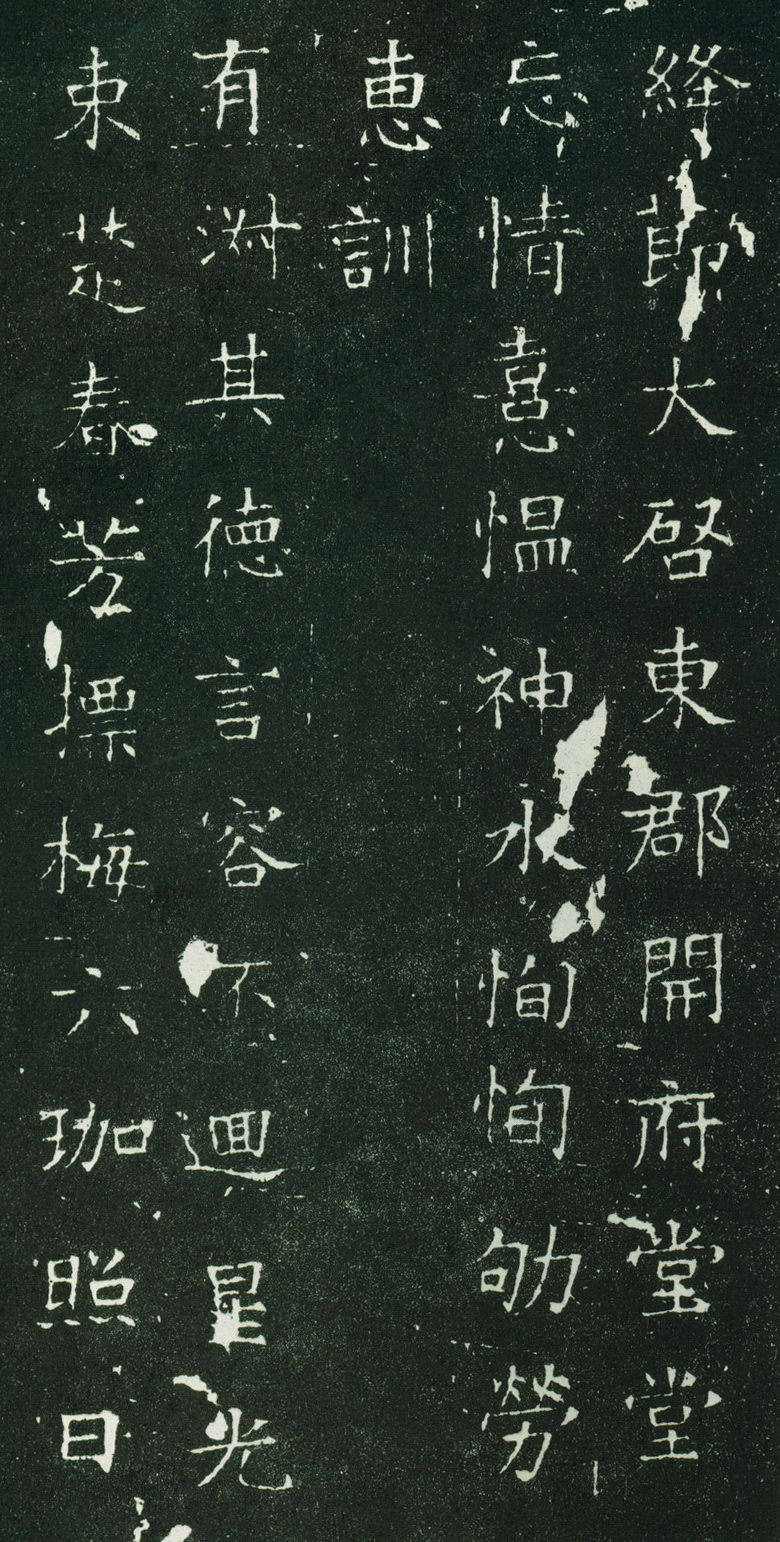 絳節大啓東郡開府堂堂
忘情憙愠神永恂恂劬勞
惠訓
有淑其德言容不迴星光
束楚春芳摽梅六珈照日